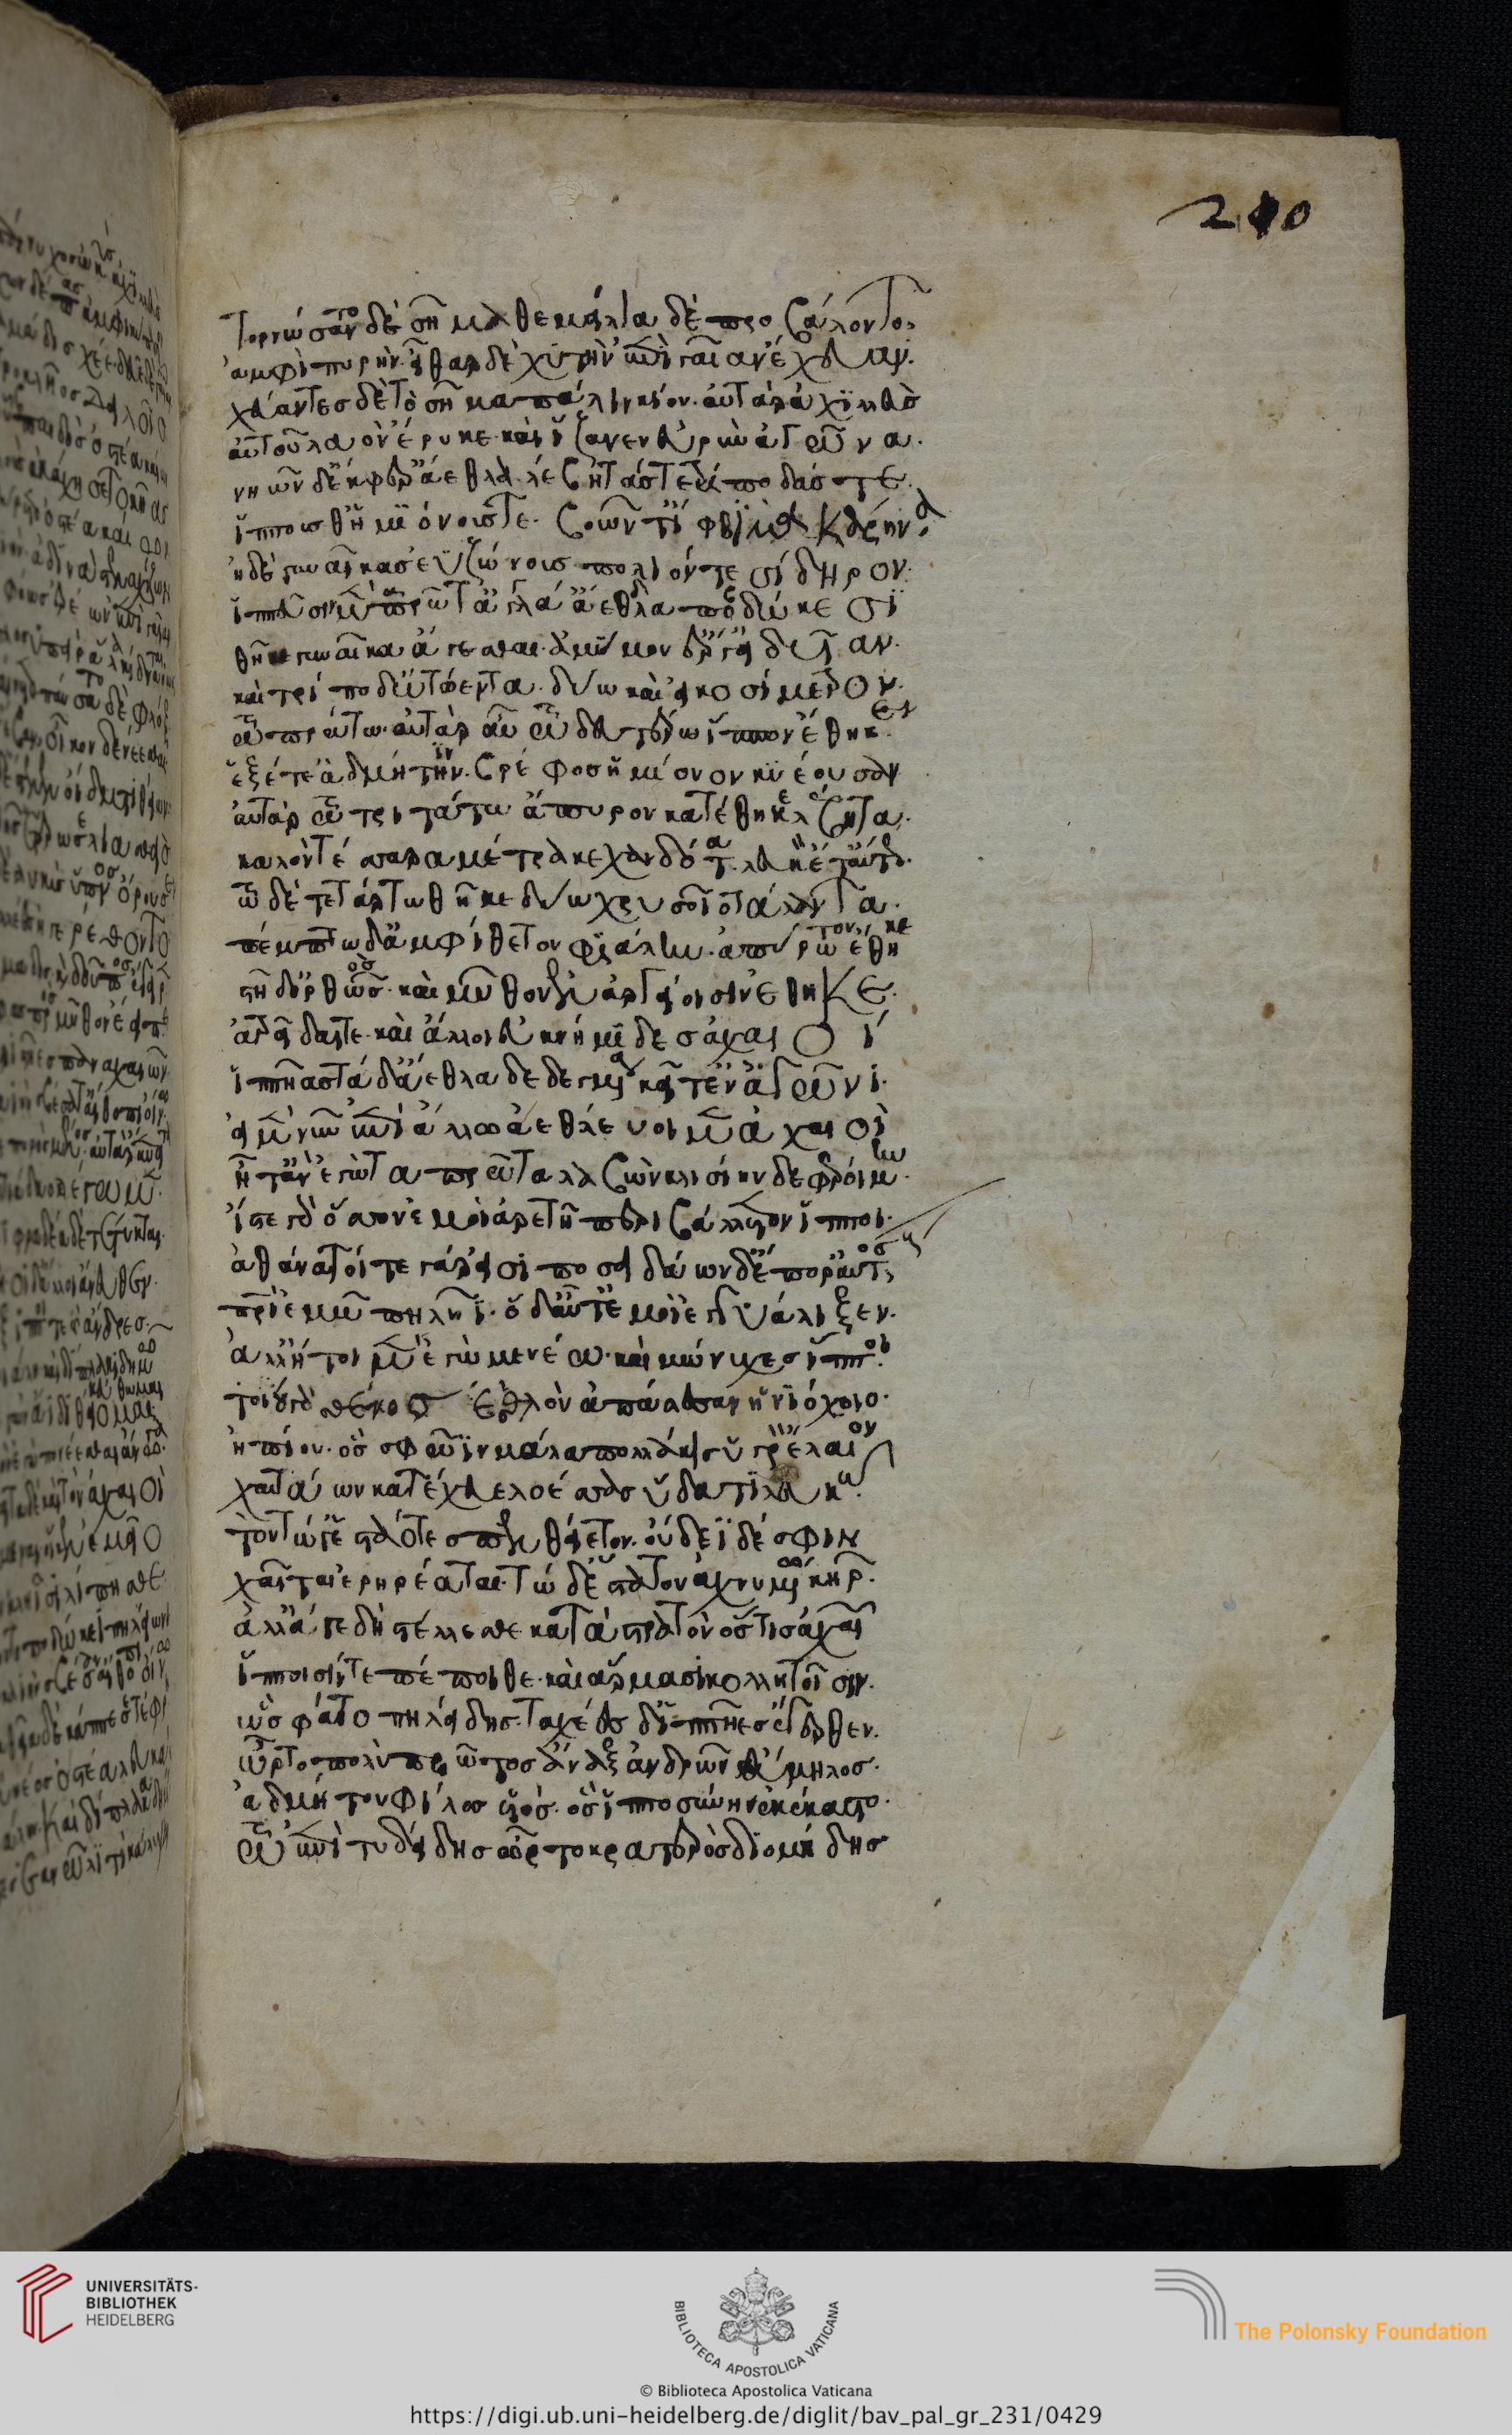 τορνώσαντο δὲ σῆμα θεμείλια δὲ προβάλοντο.
ἀμφὶ πυρὴν. εἶθαρ δὲ χυτὴν ἐπὶ γαῖαν ἔχευαν.
χεύαντες δὲ τὸ σῆμα πάλιν κίον. αὐτὰρ ἀχιλλεὺς
αὐτοῦ λαὸν ἔρυκε. καὶ ἵζανεν εὐρὺν ἀγῶνα.
νηῶν δ' ἔκφερ' ἄεθλα. λέβητάς τε τρίποδάς τε.
ἵππους θ' ἡμιόνους τε. βοῶν τ' ἴφθιμα κάρηνα.
ἠδὲ γυναῖκας ἐϋζώνους πολιόν τε σίδηρον.
ἱππεῦσιν μὲν πρῶτα ἀγλά ἄεθλα ποδώκεσϊ
θῆκε γυναῖκα ἄγεσθαι. ἀμύμονα ἔργ' εἰδυῖαν.
καὶ τρίποδ' ὠτώεντα. δύω καὶ εἰκοσίμετρον.
τῶ πρώτω. αὐτὰρ αὖ τῶ δευτέρω ἵππον ἔθηκεν.
ἑξέτε' ἀδμήτην. βρέφος ἡμίονον κϋέουσαν
αὐτὰρ τῶ τριτάτω ἄπυρον κατέθηκε λέβητα.
καλὸν τέσσαρα μέτρα κεχανδότα. λευκὸν ἔτ' αὔτως.
τῶ δὲ τετάρτω θῆκε δύω χρυσοῖο τάλαντα.
πέμπτω δ' ἀμφίθετον φιάλην. ἀπύρωτον ἔθηκε
στῆ δ' ὀρθὸς. καὶ μῦθον ἐν ἀργείοισιν ἔθηκε.
ἀτρείδαι τε. καὶ ἄλλοι ἐϋκνήμϊδες ἀχαιοί
ἱππῆας τάδ' ἄεθλα δεδεγμένα κεῖτ' ἐν ἀγῶνι.
εἰ μὲν νῦν ἐπὶ ἄλλω ἀεθλεύοιμεν ἀχαιοὶ
ἦ τ' ἂν ἐγὼ τὰ πρῶτα λαβὼν κλισίην δε φεροίμην.
ἴστε γὰρ ὅσσον ἐμοὶ ἀρετῆ περιβάλλετον ἵπποι.
ἀθάνατοί τε γάρ εἰσι. ποσειδάων δὲ πόρ' αὐτοὺς
πατρὶ ἐμῶ πηλῆϊ. ὁ δ' αὖτ' ἐμοὶ ἐγγυάλιξεν.
ἀλλ' ἤτοι μὲν ἐγὼ μενέω. καὶ μώνυχες ἵπποι.
τοίου γὰρ σθένος ἐσθλὸν ἀπώλεσαν ἡνϊόχοιο.
ἠπίου. ὅς σφωϊν μάλα πολλάκις ὑγρὸν ἔλαιον
χαιτάων κατέχευε λοέσσας ὕδατϊ λευκῶ.
τὸν τώ γ' ἑσταότες πενθείετον. οὔδεϊ δέ σφιν
χαῖται ἐρηρέαται. τὼ δ' ἕστατον ἀχνυμένω κῆρ.
ἀλλ' ἄγε δὴ στέλλεσθε κατὰ στρατὸν ὅς τις ἀχαιῶν
ἵπποισίν τε πέποιθε. καὶ ἅρμασι κολλητοῖσιν.
ὣς φάτο πηλείδης. ταχέες δ' ἱππῆες ἔγερθεν.
ὦρτο πολὺ πρῶτος ἄναξ ἀνδρῶν εὔμηλος.
ἀδμήτου φίλος υἱός. ὃς ἱπποσύνην ἐκέκαστο.
τῶ δ' ἐπὶ τυδείδης ὦρτο κρατερὸς διομήδης
210
UNIVERSITÄTS-
BIBLIOTHEK
HEIDELBERG
BIBLIOTECA APOSTOLICA VATICANA
The Polonsky Foundation
© Biblioteca Apostolica Vaticana
https://digi.ub.uni-heidelberg.de/diglit/bav_pal_gr_231/0429